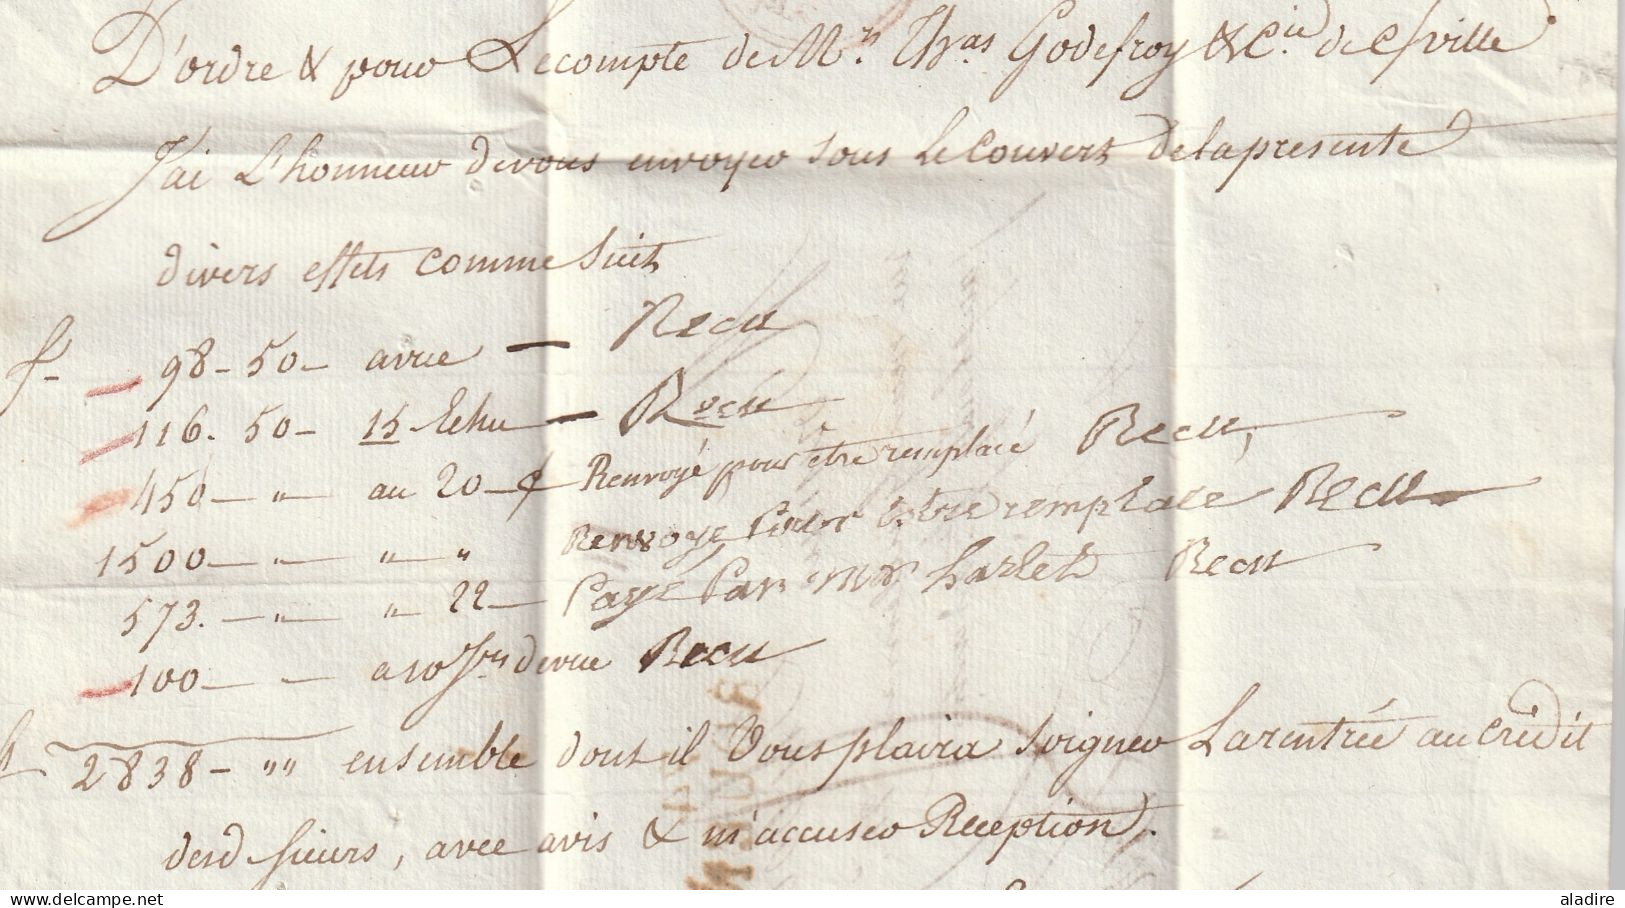 D'ordre & pour Le compte de Mrs. Thas Godefroy & Cie de cf ville
J'ai L'honneur de vous envoyer sous Le Couvert de la presente
divers effets comme Suit
f - 98 - 50 - a vue - Recu
116. 50 - 15 - Recu
450 - " - au 20 - Renvoyé pour être remplacé Recu,
1500 - " - " " Renvoye Pour Estre remplace Recu
573. - " - " 22 - Paye Par mr harlet Recu
100 - - a 10 Jrs de vue Recu
f 2838 - "" ensemble dont il Vous plaira soigner La rentrée au Crédit
desd sieurs, avec avis & m'accuser Reception.
aladire
© delcampe.net